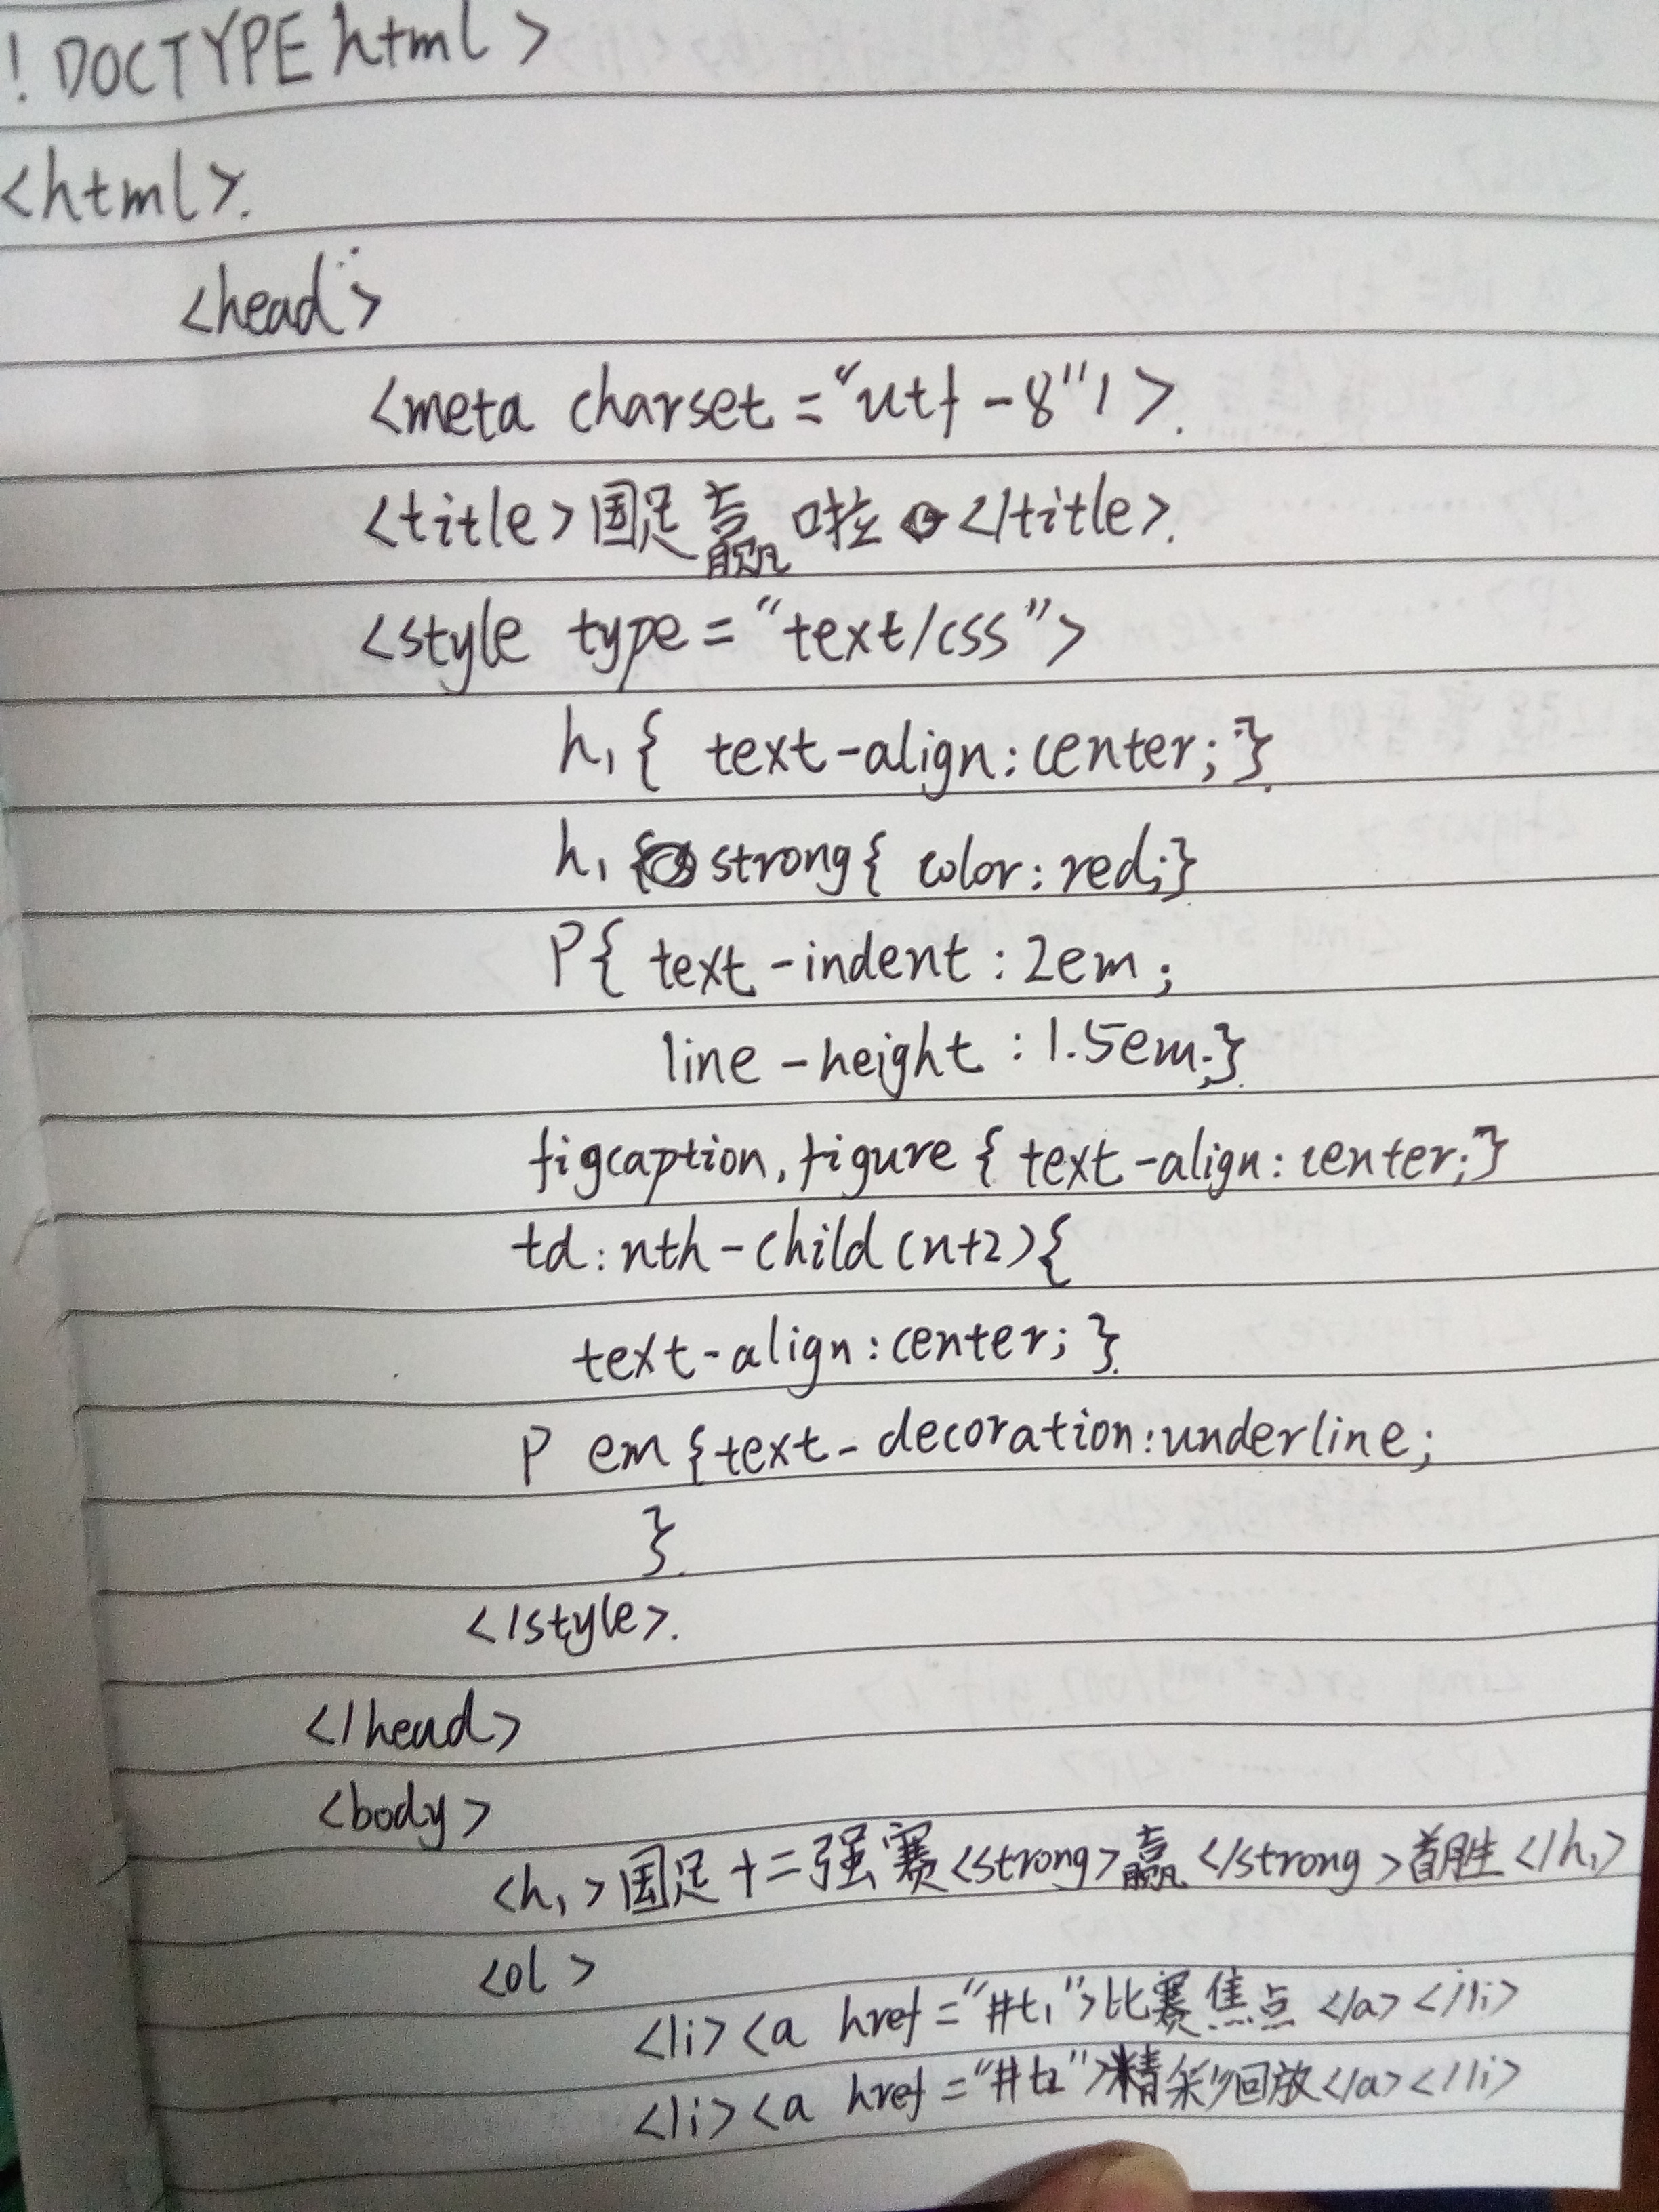 !DOCTYPE html>
<html>.
<head>
<meta charset="utf-8"/>.
<title>国足赢啦</title>.
<style type="text/css">
h1{ text-align:center;}
h1 strong{ color:red;}
P{ text-indent:2em;
line-height:1.5em;}
figcaption,figure{ text-align:center;}
td:nth-child(n+2){
text-align:center;}
P em{text-decoration:underline;
}
</style>.
</head>
<body>
<h1>国足十二强赛<strong>赢</strong>首胜</h1>
<ol>
<li><a href="#t1">比赛焦点</a></li>
<li><a href="#t2">精彩回放</a></li>